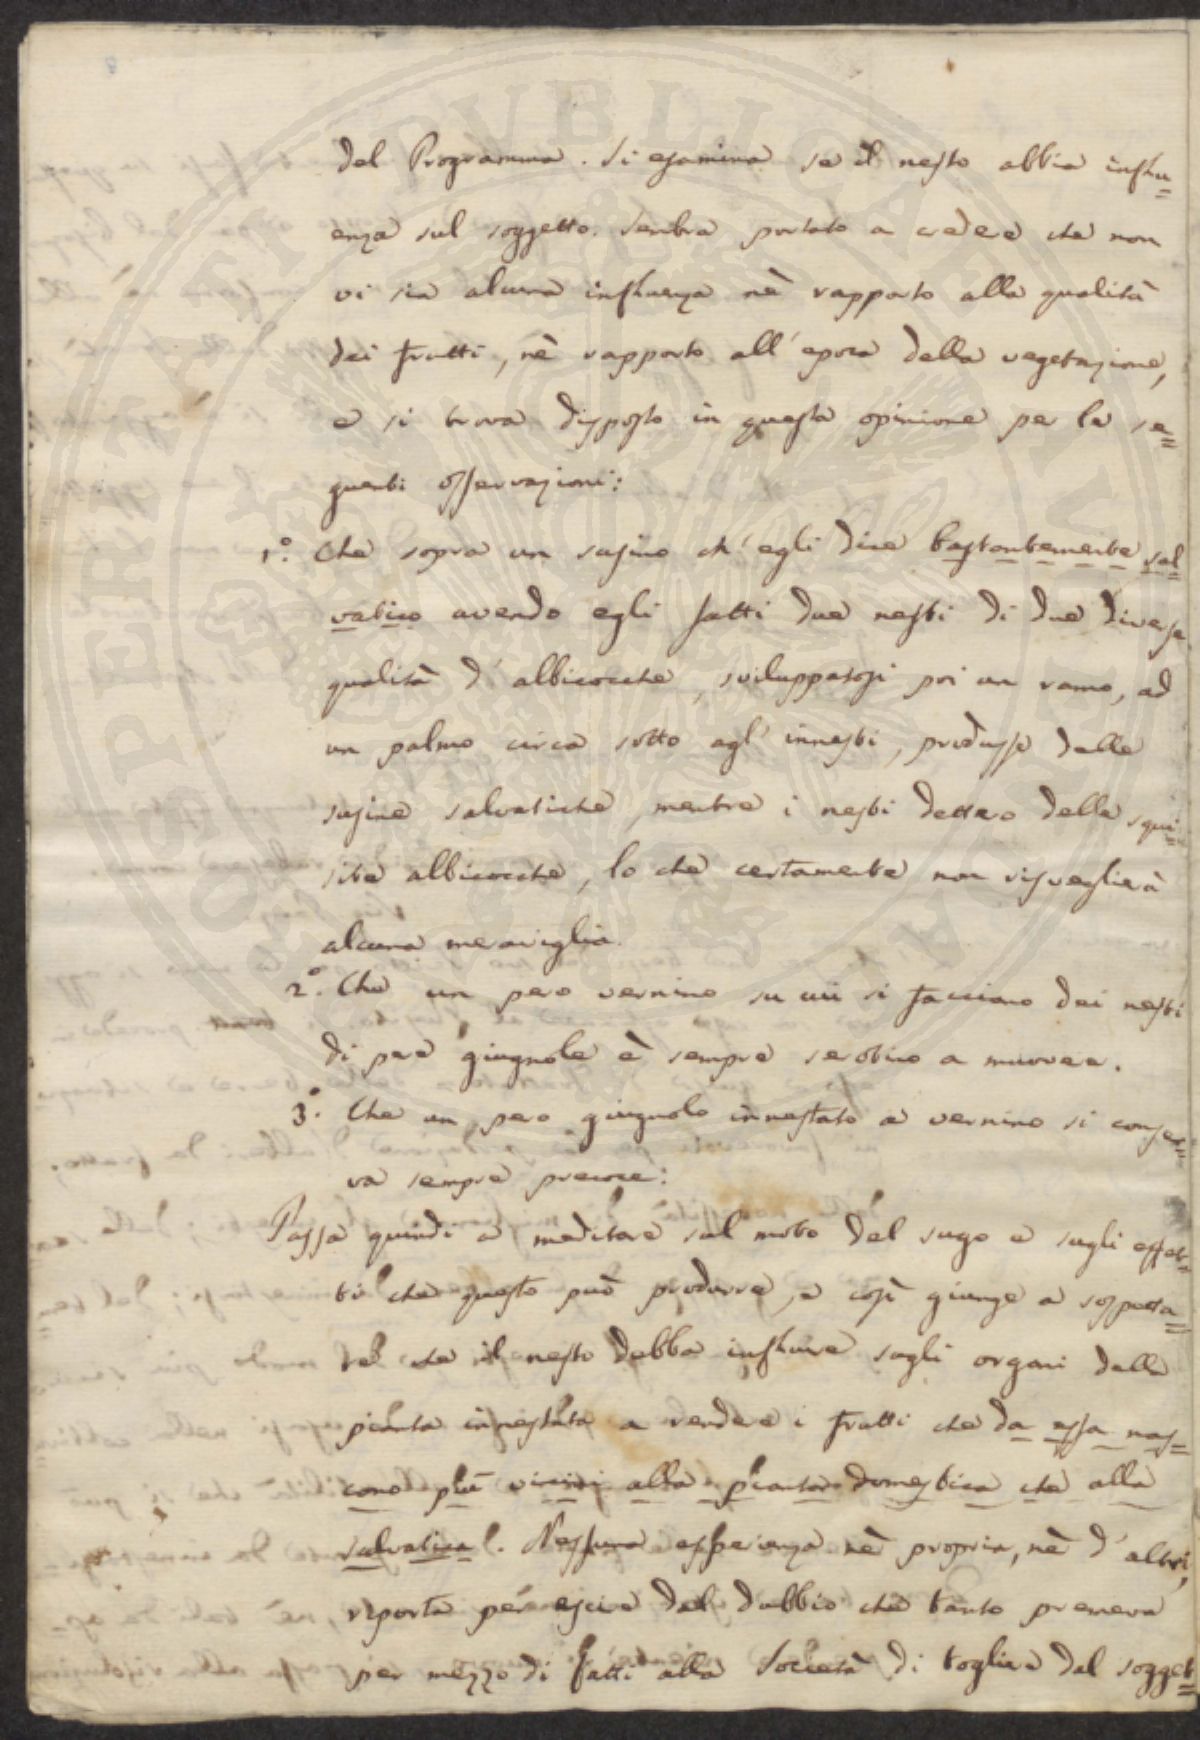 del Programma. Si esamina se il nesto abbia influ=
enza sul soggetto. Sembra portato a credere che non
vi sia alcuna influenza nè rapporto alla qualità
dei frutti, nè rapporto all'epoca della vegetazione,
e si trova disposto in questa opinione per le se=
guenti osservazioni:
1.° Che sopra un susino ch'egli dice bastantemente sal
vatico avendo egli fatti due nesti di due diverse
qualità d'albicocche, sviluppatosi poi un ramo, ad
un palmo circa sotto agl'innesti, produsse delle
susine salvatiche, mentre i nesti dettero delle squi=
site albicocche, lo che certamente non risveglierà
alcuna meraviglia.
2.° Che un pero vernino su cui si facciano dei nesti
di pere giugnole è sempre serotino a muovere.
3.° Che un pero giugnolo innestato a vernino si conser=
va sempre precoce:
Passa quindi a meditare sul moto del sugo e sugli effet=
ti che questo può produrre, e così giunge a sospetta=
re che il nesto debba influire sugli organi della
pianta innestata a rendere i frutti che da essa nas=
cono più vicini alla pianta domestica che alla
salvatica. Nessuna esperienza nè propria, nè d'altri,
riporta per escire dal dubbio che tanto premeva
per mezzo di fatti alla Società di togliere dal sogget=